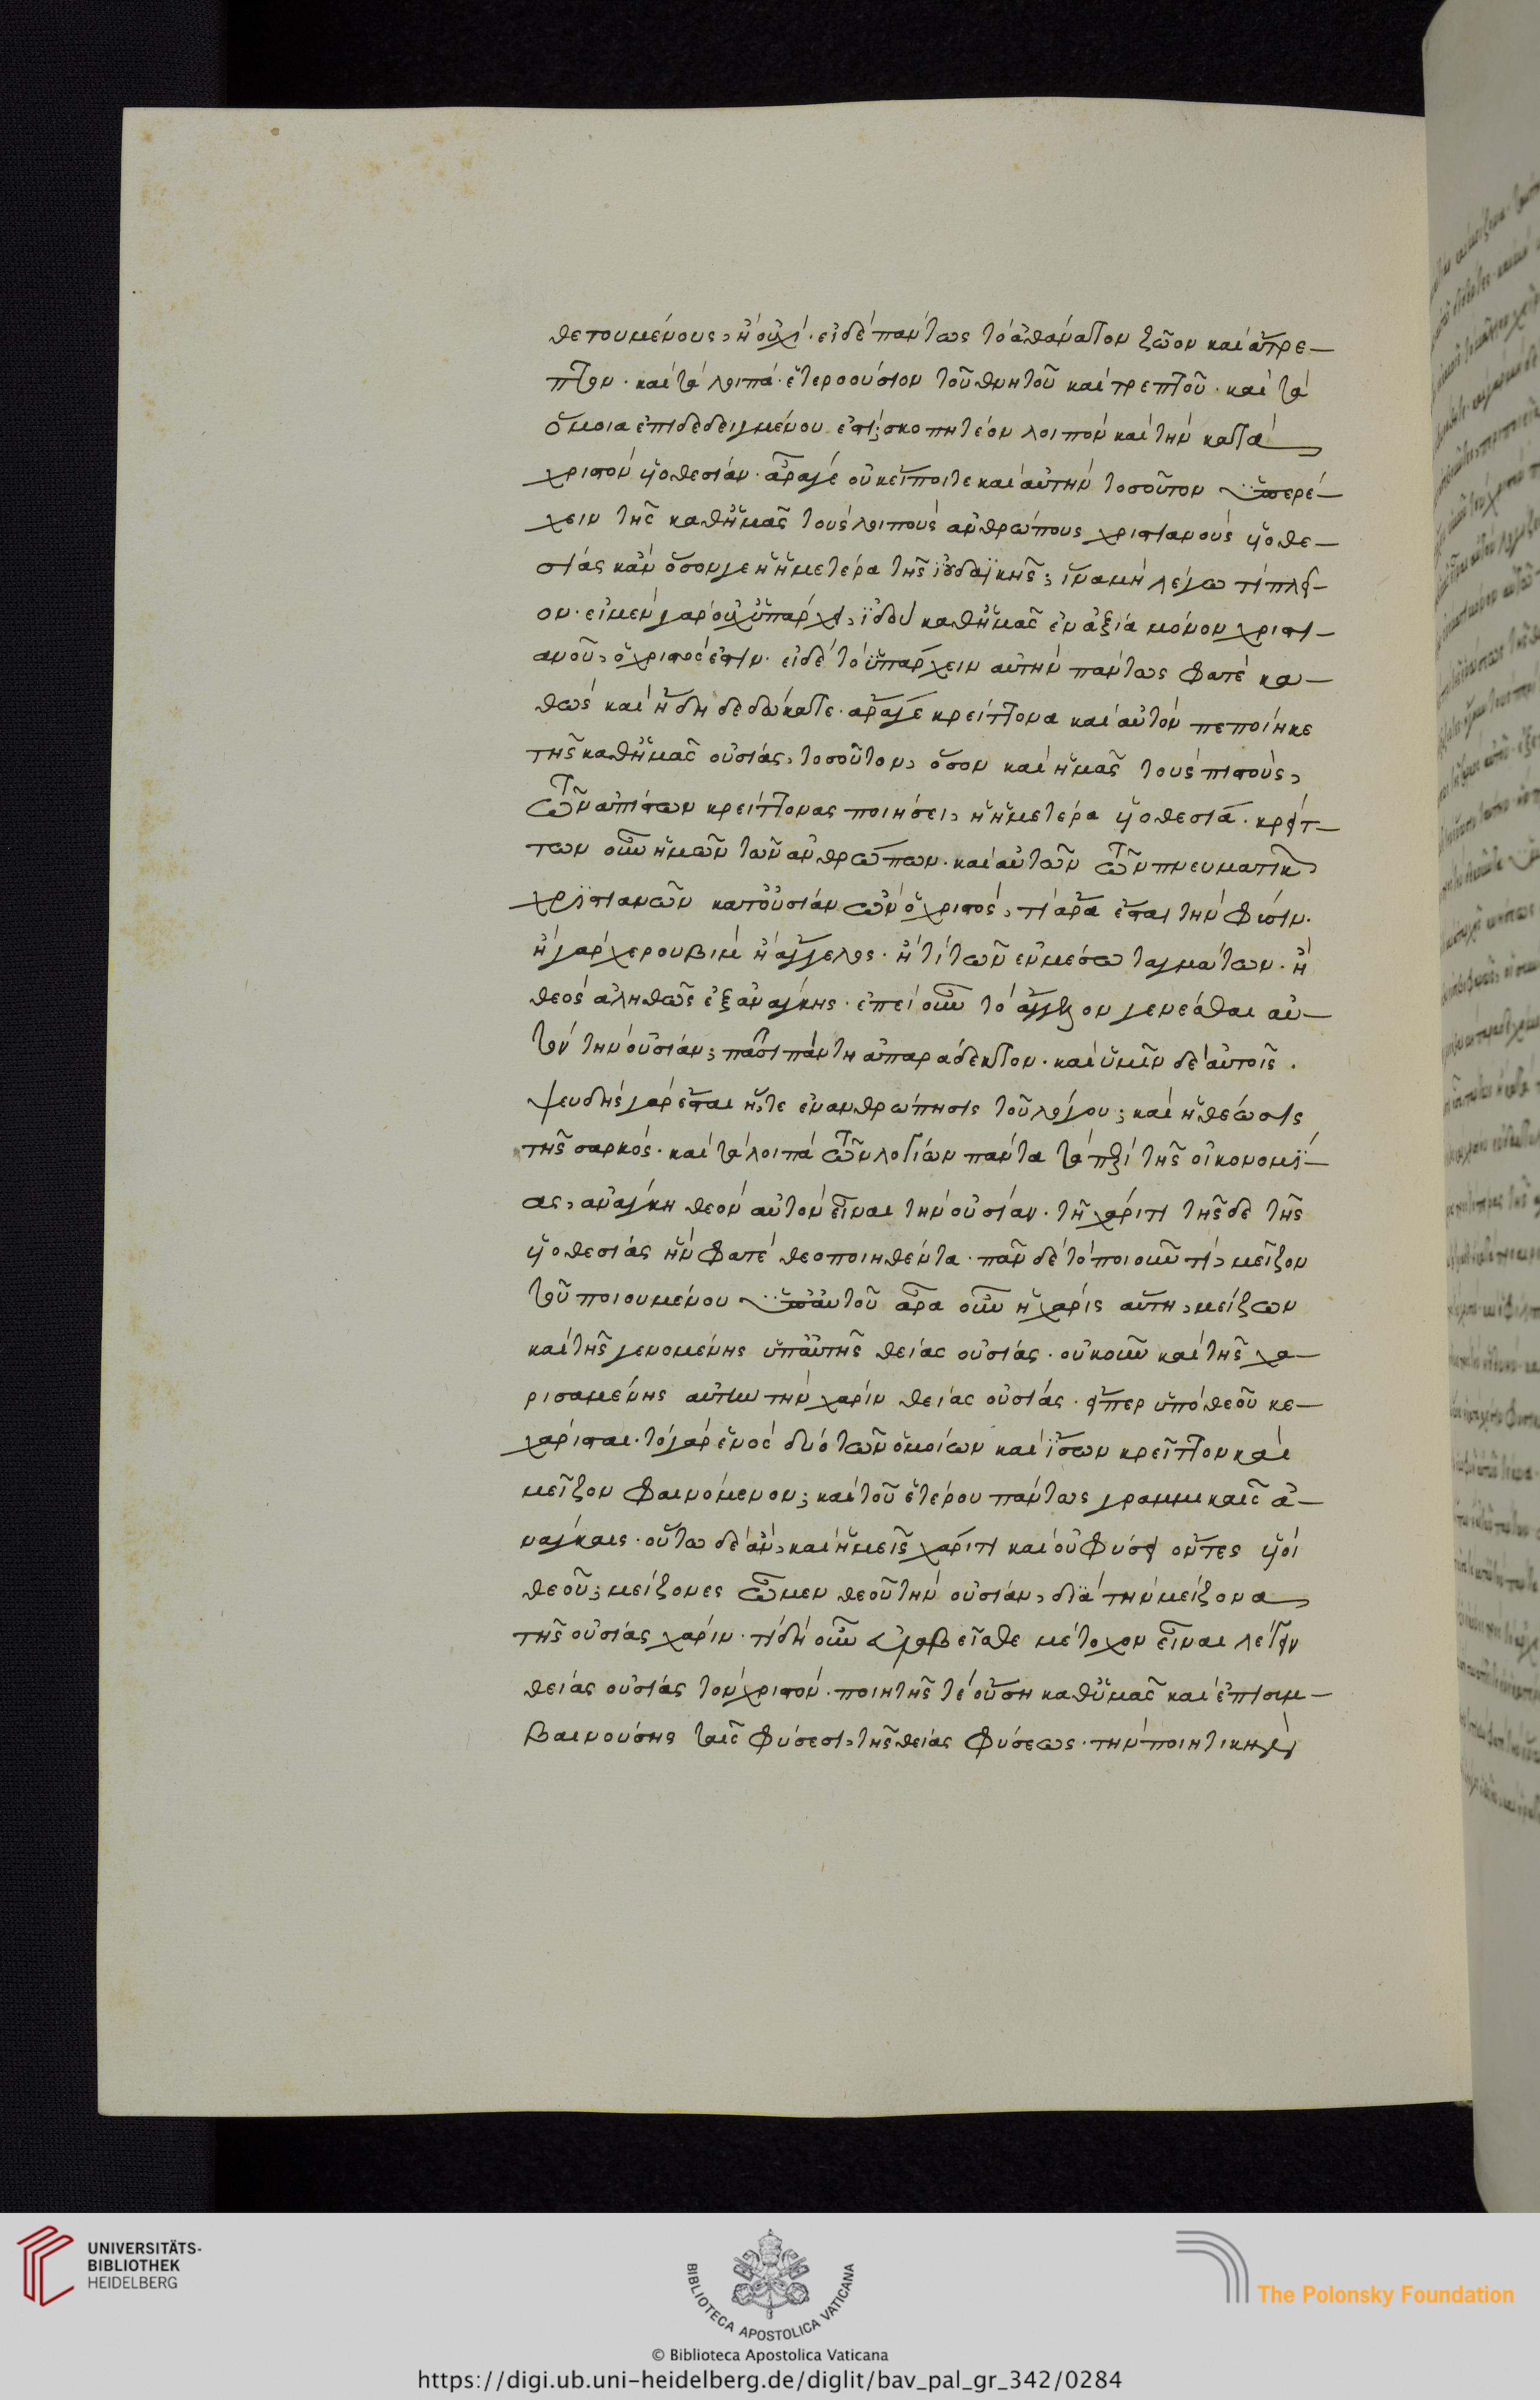 θετουμένους, ἢ οὐχί· εἰ δὲ πάντως τὸ ἀθάνατον ζῶον καὶ ἄτρε-
πτον· καὶ τὰ λοιπὰ· ἑτεροούσιον τοῦ θνητοῦ καὶ τρεπτοῦ· καὶ τὰ
ὅμοια ἐπιδεδειγμένου ἐπισκοπητέον λοιπὸν καὶ τὴν κατὰ
χριστὸν υἱοθεσίαν· ἆράγε οὐκ εἴποιτε καὶ αὐτὴν τοσοῦτον ὑπερέ-
χειν τῆς καθ' ἡμᾶς τοὺς λοιποὺς ἀνθρώπους χριστιανοὺς υἱοθε-
σίας κἂν ὅσον γε ἡ ἡμετέρα τῆς ἰουδαϊκῆς; ἵνα μὴ λέγω τί πλεῖ-
ον· εἰ μὲν γὰρ οὐχ ὑπάρχει, ἰδοὺ καθ' ἡμᾶς ἐν ἀξία μόνον χριστι-
ανοῦ, ὁ χριστός ἐστιν· εἰ δὲ τὸ ὑπάρχειν αὐτὴν πάντως φατὲ κα-
θὼς καὶ ἤδη δεδώκατε· ἆράγε κρείττονα καὶ αὐτὸν πεποίηκε
τῆς καθ' ἡμᾶς οὐσίας, τοσοῦτον, ὅσον καὶ ἡμᾶς τοὺς πιστοὺς,
τῶν ἀπίστων κρείττονας ποιήσει, ἡ ἡμετέρα υἱοθεσία· κρείτ-
των οὖν ἡμῶν τῶν ἀνθρώπων· καὶ αὐτῶν τῶν πνευματικῶν
χριστιανῶν κατ' οὐσίαν ὢν ὁ χριστὸς, τί ἄρα ἔσται τὴν φύσιν·
ἢ γὰρ χερουβὶμ ἢ ἄγγελος· ἤ τι τῶν ἐν μέσω ταγμάτων· ἢ
θεὸς ἀληθῶς ἐξ ἀνάγκης· ἐπεὶ οὖν τὸ ἄγγελον γενέσθαι αὐ-
τὸν τὴν οὐσίαν; πᾶσι πάντη ἀπαράδεκτον· καὶ ὑμῖν δὲ αὐτοῖς·
ψευδὴς γὰρ ἔσται ἥτε ἐνανθρώπησις τοῦ λόγου; καὶ ἡ θέωσις
τῆς σαρκός· καὶ τὰ λοιπὰ τῶν λογίων πάντα τὰ περὶ τῆς οἰκονομί-
ας, ἀνάγκη θεὸν αὐτὸν εἶναι τὴν οὐσίαν· τῆ χάριτι τῆς δε τῆς
υἱοθεσίας ἣν φατὲ θεοποιηθέντα· πᾶν δὲ τὸ ποιοῦν τὶ, μεῖζον
τοῦ ποιουμένου ὑπ' αὐτοῦ ἄρα οὖν ἡ χάρις αὕτη, μείζων
καὶ τῆς γενομένης ὑπ' αὐτῆς θείας οὐσίας· οὐκοῦν καὶ τῆς χα-
ρισαμένης αὐτῶ τὴν χάριν θείας οὐσίας· εἴπερ ὑπὸ θεοῦ κε-
χάρισται· τὸ γὰρ ἑνὸς δύο τῶν ὁμοίων καὶ ἴσων κρεῖττον καὶ
μεῖζον φαινόμενον; καὶ τοῦ ἑτέρου πάντως γραμμικαῖς ἀ-
νάγκαις· οὕτω δὲ ἂν, καὶ ἡμεῖς χάριτι καὶ οὐ φύσει ὄντες υἱοὶ
θεοῦ; μείζονες ὦμεν θεοῦ τὴν οὐσίαν, διὰ τὴν μείζονα
τῆς οὐσίας χάριν· τί δὴ οὖν εὐλαβεῖσθε μέτοχον εἶναι λέγειν
θείας οὐσίας τὸν χριστόν· ποιητῆς τὲ οὔση καθ' ὑμᾶς καὶ ἐπισυμ-
βαινούσης ταῖς φύσεσι, τῆς θείας φύσεως· τὴν ποιητικὴν